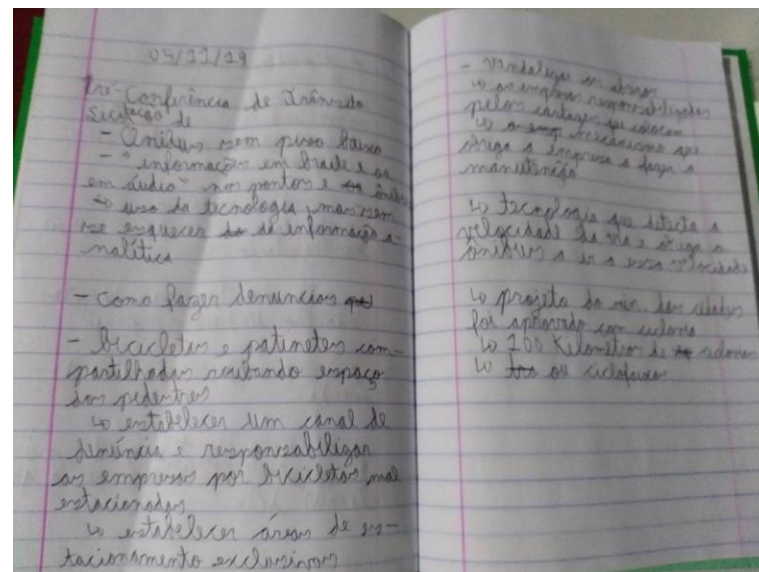 05/11/19
Pré-Conferência de Trânsito
Licitação de
- Ônibus sem piso baixo
- "informações em braile e os
em áudio" nos pontos e ônibus
↳ uso da tecnologia, mas sem
se esquecer da informação a-
nalítica
- como fazer denuncias
- bicicletas e patinetes com-
partilhados roubando espaço
dos pedestres
↳ estabelecer um canal de
denúncia e responsabilizar
as empresas por bicicletas mal
estacionadas
↳ estabelecer áreas de es-
tacionamento exclusivos
- vandalizar os
↳ as empresas responsabilizadas
pelos cartazes que colocam
↳ o mecanismo que
obriga a empresa a fazer a
manutenção
↳ tecnologia que detecta a
velocidade da via e obriga o
ônibus a ir a essa velocidade
↳ projeto do min. das cidades
foi aprovado com ciclovia
↳ 100 Kilometros de ciclovias
↳ ou ciclofaixas